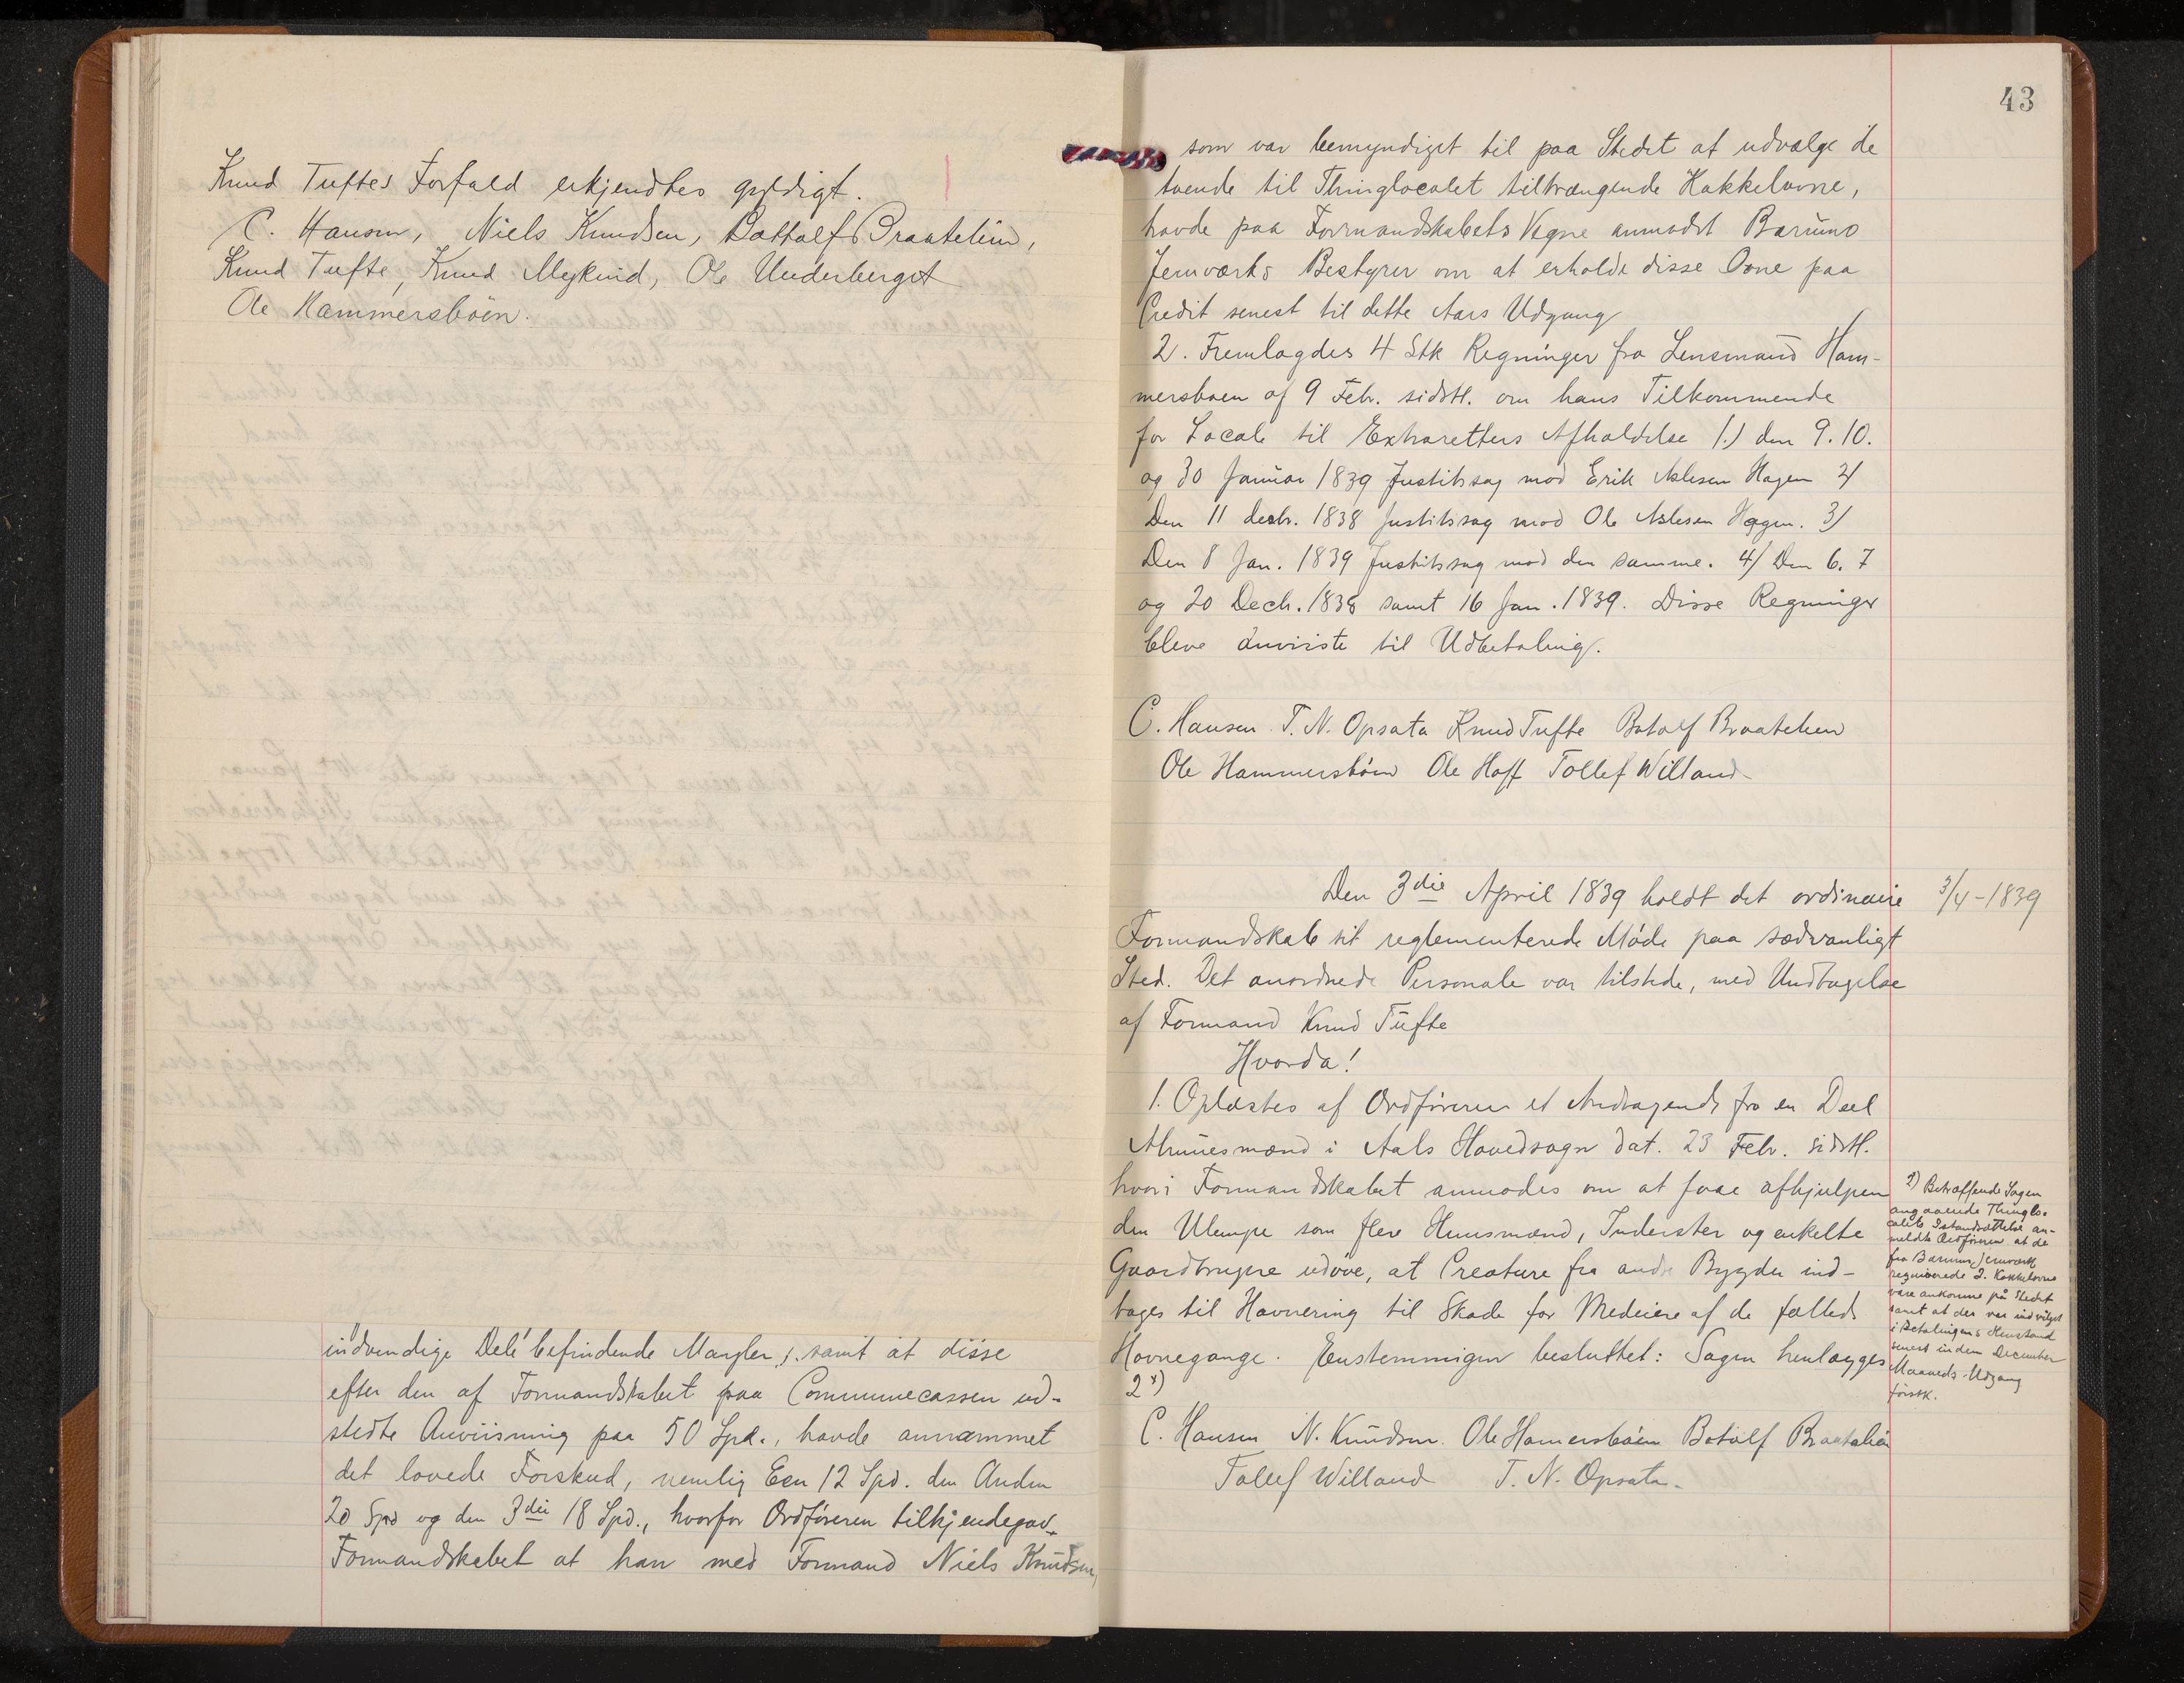 Knud Tuftes Forfald erkjendtes gyldigt.
C. Hansen, Niels Knudsen, Bottolf Braatelien,
Knud Tufte, Knud Myking, Ole Underberget
Ole Hammersbøen.
indvendige Dele befindende Mangler, samt at disse
efter den af Formandskabet paa Communecassen ud-
stedte Anviisning paa 50 Spd., havde annammet
det lovede Forskud, nemlig Een 12 Spd. den Anden
20 Spd og den 3die 18 Spd., hvorfor Ordføreren tilkjendegav
Formandskabet at han med Formand Niels Knudsen,
43
som var bemyndiget til paa Stedet at udvælge de
tvende til Thinglocalet tiltrængende Kakkelovne,
havde paa Formandskabets Vegne anmodet Bærums
Jernværks Bestyrer om at erholde disse Ovne paa
Credit senest til dette Aars Udgang
2. Fremlagdes 4 Stk Regninger fra Lensmand Ham-
mersbøen af 9 Febr. sidstl. om hans Tilkommende
for Locale til Extraretters Afholdelse 1.) den 9. 10.
og 30 Januar 1839 Justitssag mod Erik Aslesen Hagen 2/
Den 11 decbr. 1838 Justitssag mod Ole Aslesen Hagen. 3/
Den 8 Jan. 1839 Justitssag mod den samme. 4/ Den 6. 7
og 20 Dech. 1838 samt 16 Jan. 1839. Disse Regninger
bleve anviiste til Udbetaling.
C. Hansen T. N. Opsata Knud Tufte Botolf Braatelien
Ole Hammersbøen Ole Hoff Tollef Willand
Den 3die April 1839 holdt det ordinaire
3/4-1839
Formandskab sit reglementerede Møde paa sædvanligt
Sted. Det anordnede Personale var tilstede, med Undtagelse
af Formand Knud Tufte
Hvorda!
1. Oplæstes af Ordføreren et Andragende fra en Deel
Almuesmænd i Aals Hovedsogn dat. 23 Febr. sidstl.
hvori Formandskabet anmodes om at faae afhjulpen
den Ulempe som flere Huusmænd, Inderster og enkelte
Gaardbrugere udøve, at Creature fra andre Bygder ind-
tages til Havnering til Skade for Medeiere af de fælleds
Havnegange. Eenstemmigen besluttet: Sagen henlægges
2 x)
x) Betræffende Sagen
angaaende Thinglo-
calets Istandsættelse an-
meldte Ordføreren at de
fra Bærums Jernværk
requirerede 2. Kakkelovne
vare ankomne på Stedet
samt at der var indvilget
i Betalingens Henstand
senest inden December
Maaneds Udgang
førstk.
C. Hansen N. Knudsen. Ole Hamersbøen Botolf Braatalien
Tollef Willand T. N. Opsata.